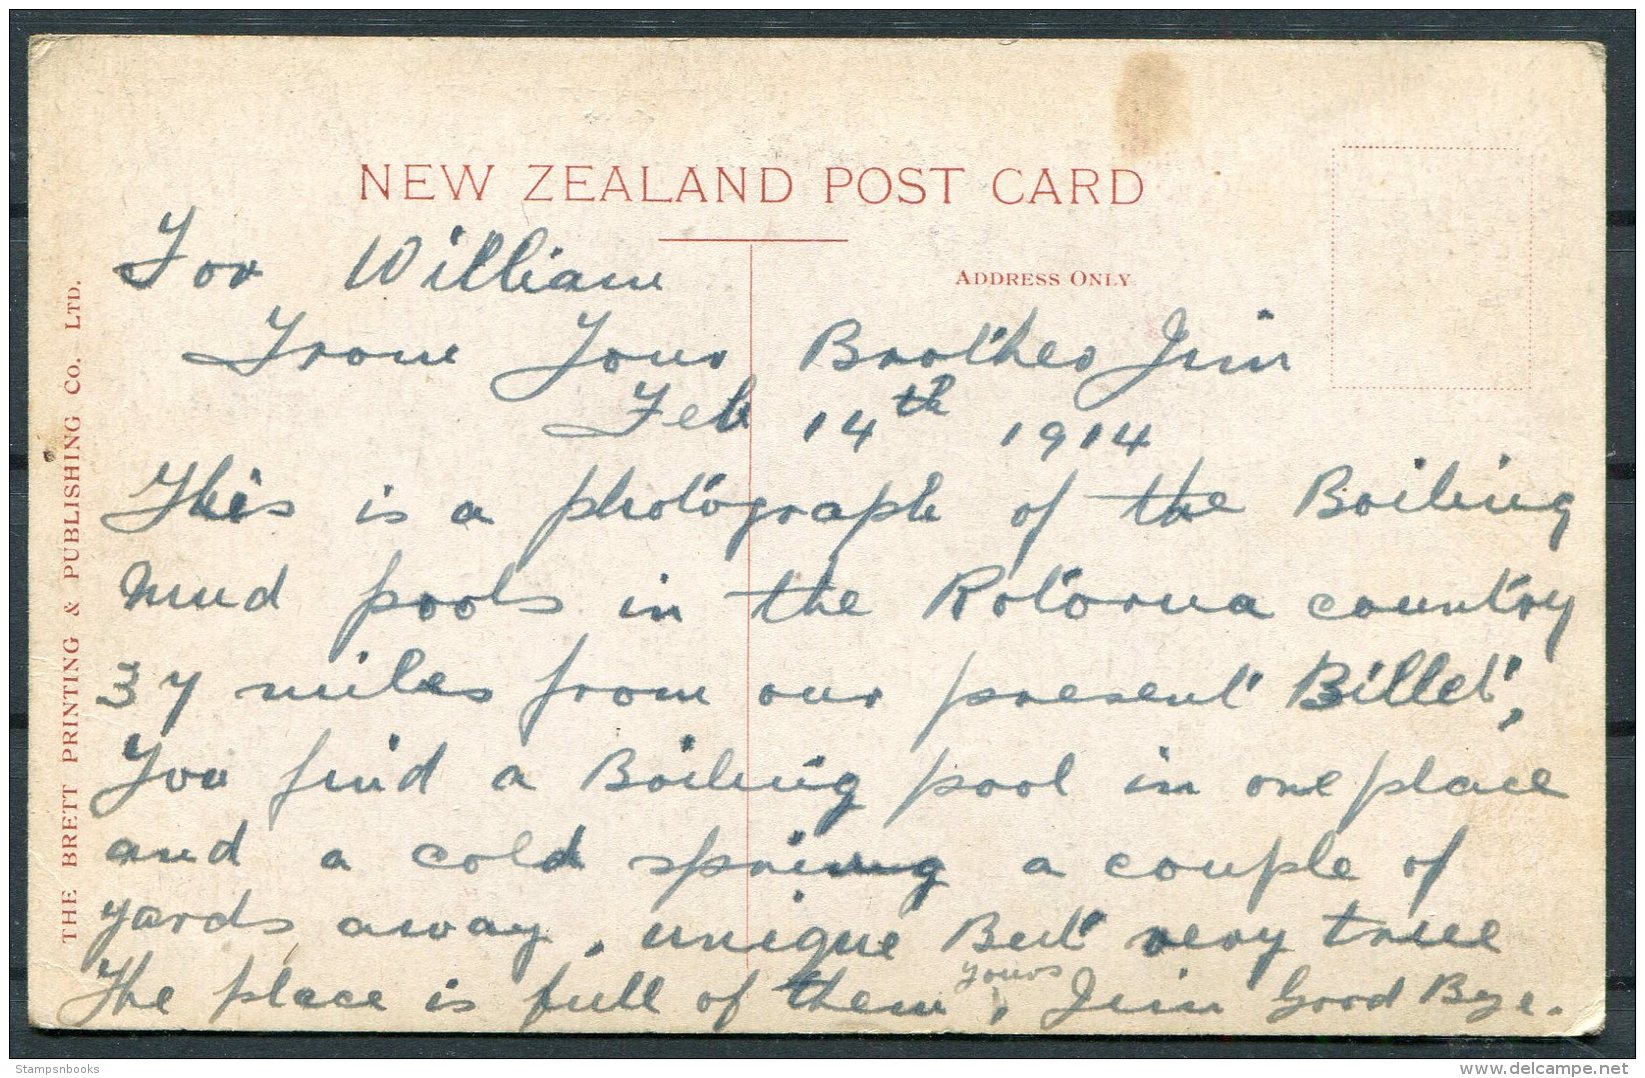 NEW ZEALAND POST CARD
ADDRESS ONLY
THE BRETT PRINTING & PUBLISHING CO. LTD.
For William
From Your Brother Jim
Feb 14th 1914
This is a photograph of the Boiling
mud pools in the Rotorua country
37 miles from our present Billet,
You find a Boiling pool in one place
and a cold spring a couple of
yards away, unique But very true
The place is full of them, yours Jim Good Bye.
Stampsnbooks
www.delcampe.net